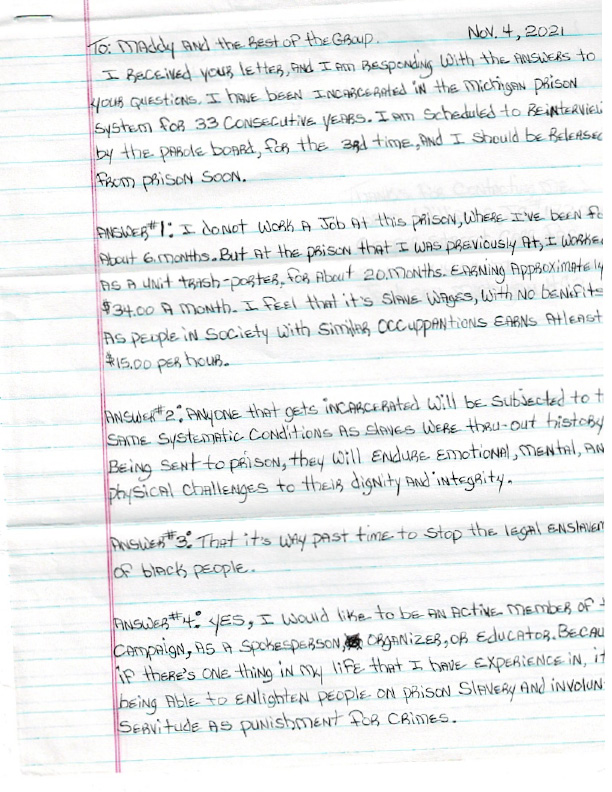 To: Maddy and the Rest of the Group. Nov. 4, 2021
I Received your letter, and I am Responding with the answers to
your questions. I have been Incarcerated in the Michigan prison
system for 33 consecutive years. I am scheduled to Reintervie
by the parole board, for the 3rd time, and I should be Release
from prison soon.
Answer #1: I do not work a Job at this prison, where I've been fo
About 6 months. But at the prison that I was previously At, I worke
As a unit trash-porter, for about 20 months. Earning Approximately
$34.00 a month. I feel that it's slave wages, with no benefits
As people in society with similar occuppantions earns atleast
$15.00 per hour.
Answer #2: Anyone that gets incarcerated will be subjected to t
same systematic conditions as slaves were thru-out history
Being sent to prison, they will endure emotional, mental, an
physical challenges to their dignity and integrity.
Answer #3: That it's way past time to stop the legal enslavem
of black people.
Answer #4: Yes, I would like to be an active member of
campaign, as a spokesperson, organizer, or educator. Becau
if there's one thing in my life that I have experience in, it
being able to enlighten people on prison slavery and involun
servitude as punishment for crimes.